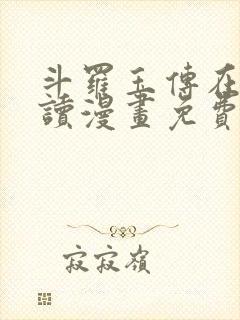 斗羅玉傳在
讀漫畫免費
寂寂嶺